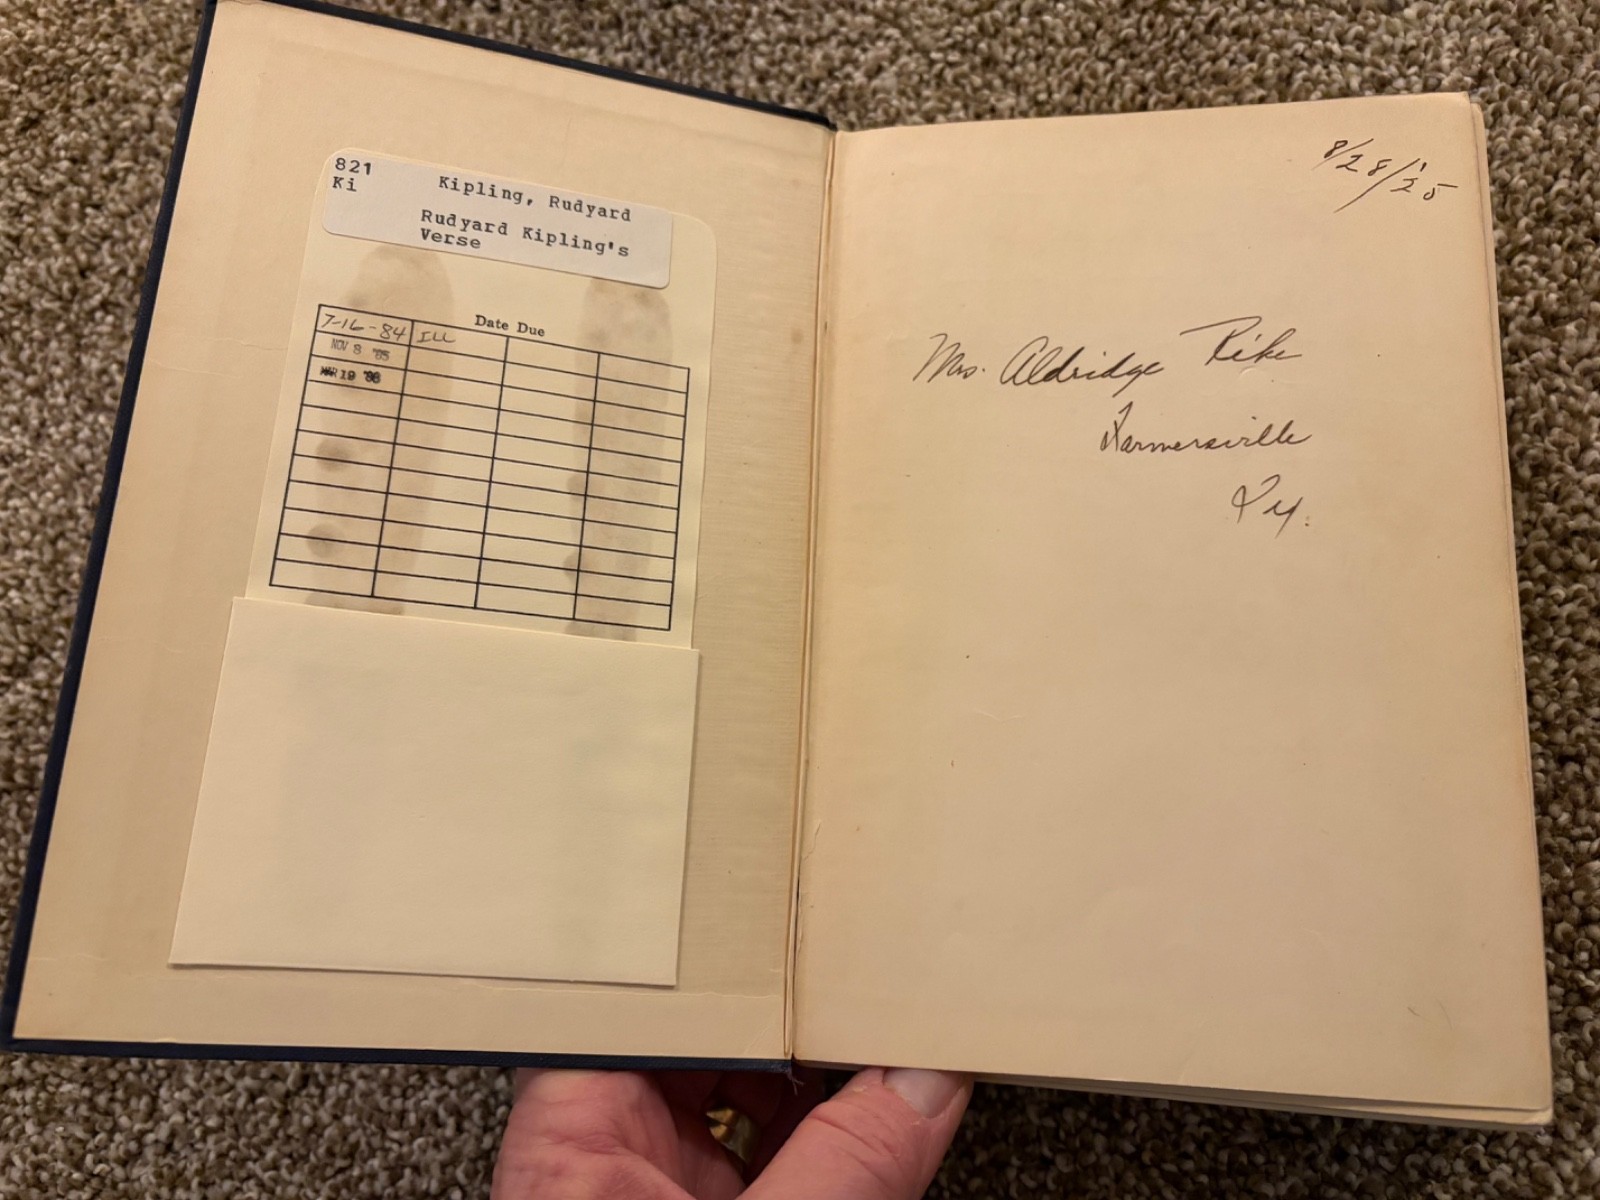 821
Ki
Kipling, Rudyard
Rudyard Kipling's
Verse
Date Due
7-16-84 ILL
NOV 8 '85
MAR 19 '86
8/28/'25
Mrs. Aldridge Rike
Farmersville
Tex.